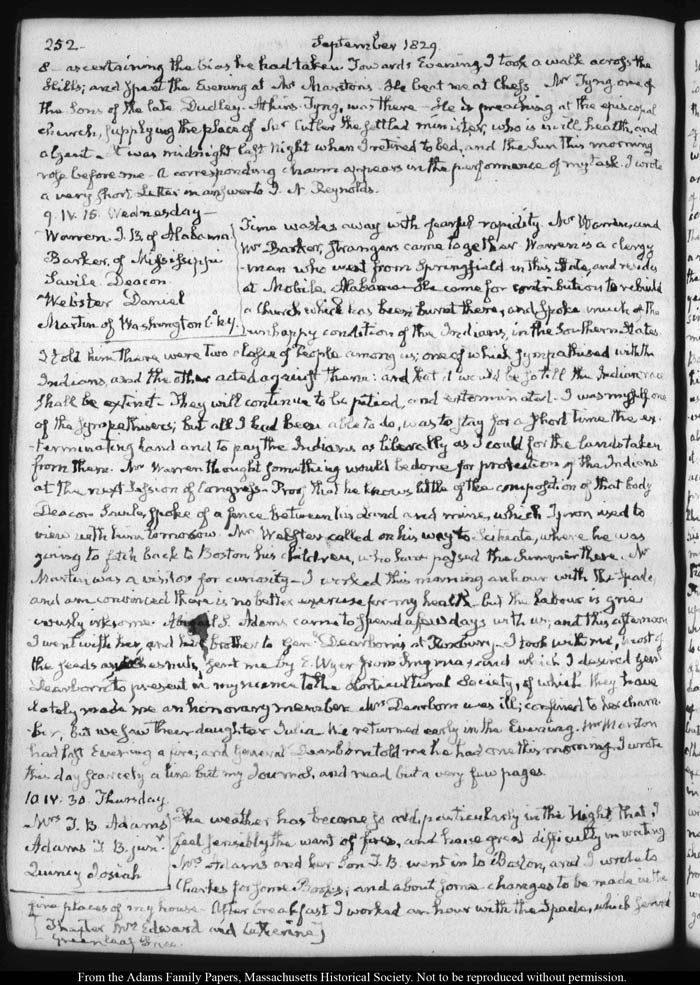 252.
September 1829.
& ascertaining the bias he had taken Towards Evening, I took a walk across the
Hills; and spent the Evening at Mr Marstons. He beat me at Chess Mr Tyng one of
the Sons of the late Dudley Atkins Tyng, was there He is preaching at the episcopal
church, supplying the place of Mr Cutler the settled minister, who is in ill health, and
absent. It was midnight last Night when I retired to bed, and the Sun this morning
rose before me A corresponding chasm appears in the performance of my task. I wrote
a very short Letter in answer to I. N. Reynolds.
9. IV. 15. Wednesday
Warren. I. B. of Alabama
Barker, of Missisippi
Savile Deacon
Webster Daniel
Martin of Washington Co Ky.
Time wastes away with fearful rapidity. Mr Warren, and
Mr Barker, strangers came together Warren is a clergy
-man who went from Springfield in this State, and resides
at Mobile, Alabama He came for contribution to rebuild
a Church which has been burnt there, and spoke much of the
unhappy condition of the Indians, in the Southern States
I told him there were two classes of People among us; one of which sympathised with the
Indians, and the other acted against them: and that it would be so till the Indian race
shall be extinct. They will continue to be pitied, and exterminated. I was myself one
of the sympathisers; but all I had been able to do, was to stay for a short time the ex-
-terminating hand and to pay the Indians as liberally as I could for the lands taken
from them. Mr Warren thought something would be done for protection of the Indians
at the next Session of Congress. Proof that he knows little of the composition of that body
Deacon Savile, spoke of a fence between his Land and mine, which I promised to
view with him tomorrow. Mr Webster called on his way to Scituate, where he was
going to fetch back to Boston his children, who have passed the Summer there. Mr
Martin was a visitor for curiosity I worked this morning an hour with the Spade,
and am convinced there is no better exercise for my health but the labour is grie
vously irksome. S. Adams came to spend a few days with us; and this afternoon
I went with her and her brother to Genl Dearborn's at Roxbury. I took with me, most of
the seeds and chesnuts, sent me by E. Wyer from Smyrna, and which I desired Genl
Dearborn to present in my name to the Horticultural Society, of which they have
lately made me an honorary member Mrs Dearborn was ill; confined to her cham
ber, but we saw their daughter Julia We returned early in the Evening. Mr Marston
had last Evening a fire; and General Dearborn told me he had one this morning. I wrote
this day scarcely a line but my Journal, and read but a very few pages.
10. IV. 30. Thursday
Mrs T. B. Adams
Adams T B. junr.
Quincy Josiah
The weather has become so cold, particularly in the Night, that I
feel sensibly the want of fires, and have great difficulty in writing
Mrs Adams and her Son T. B. went in to Boston, and I wrote to
Charles for some Books; and about some changes to be made in the
fire places of my house. After breakfast I worked an hour with the Spade, which served
Thaxter Mrs Edward and Catherine
Greenleaf
From the Adams Family Papers, Massachusetts Historical Society. Not to be reproduced without permission.